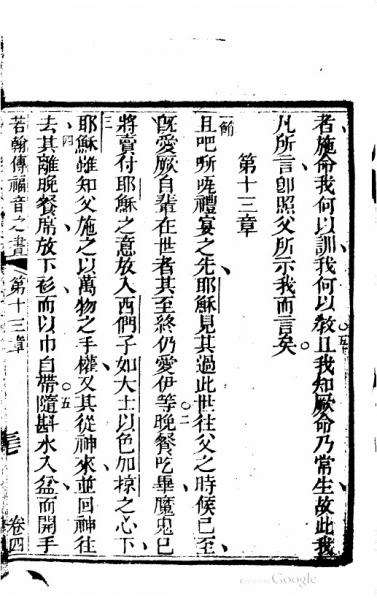 者施命我何以訓我何以敎五十且我知厥命乃常生故此我
凡所言卽照父所示我而言矣
第十三章
一節且吧唦禮宴之先耶穌見其過此世往父之時候已至
旣愛厥自輩在世者其至終仍愛伊等○二晚餐吃畢魔鬼已
將賣付耶穌之意放入西們子如大士以色加掠之心下
三耶穌雖知父施之以萬物之手權又其從神來並回神往
四去其離晚餐席放下衫而以巾自帶○五隨斟水入盆而開手
若翰傳福音之書 第十三章 卷四
Google